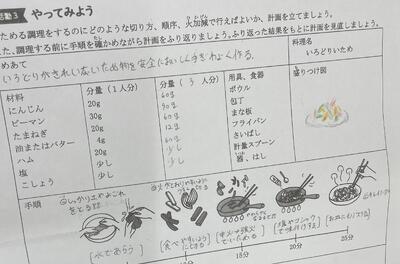 活動3 やってみよう
ためる調理をするのにどのような切り方、順序、火加減で行えばよいか、計画を立てましょう。
た、調理する前に手順を確かめながら計画をふり返りましょう。ふり返った結果をもとに計画を見直しましょう。
めあて
いろどりがきれいないため物を安全においしく
料理名
いろどりいため
材料
分量（1人分）
分量（3人分）
用具、食器
盛りつけ図
にんじん
20g
60g
ボウル
ピーマン
30g
90g
包丁
たまねぎ
20g
60g
まな板
油またはバター
4g
12g
フライパン
ハム
20g
60g
さいばし
塩
少し
少し
計量スプーン
こしょう
少し
少し
器、はし
手順
水であらう
食べやすいように
中火か強火
でいためる
塩やコショウ
で味付けする
15分
20分
25分